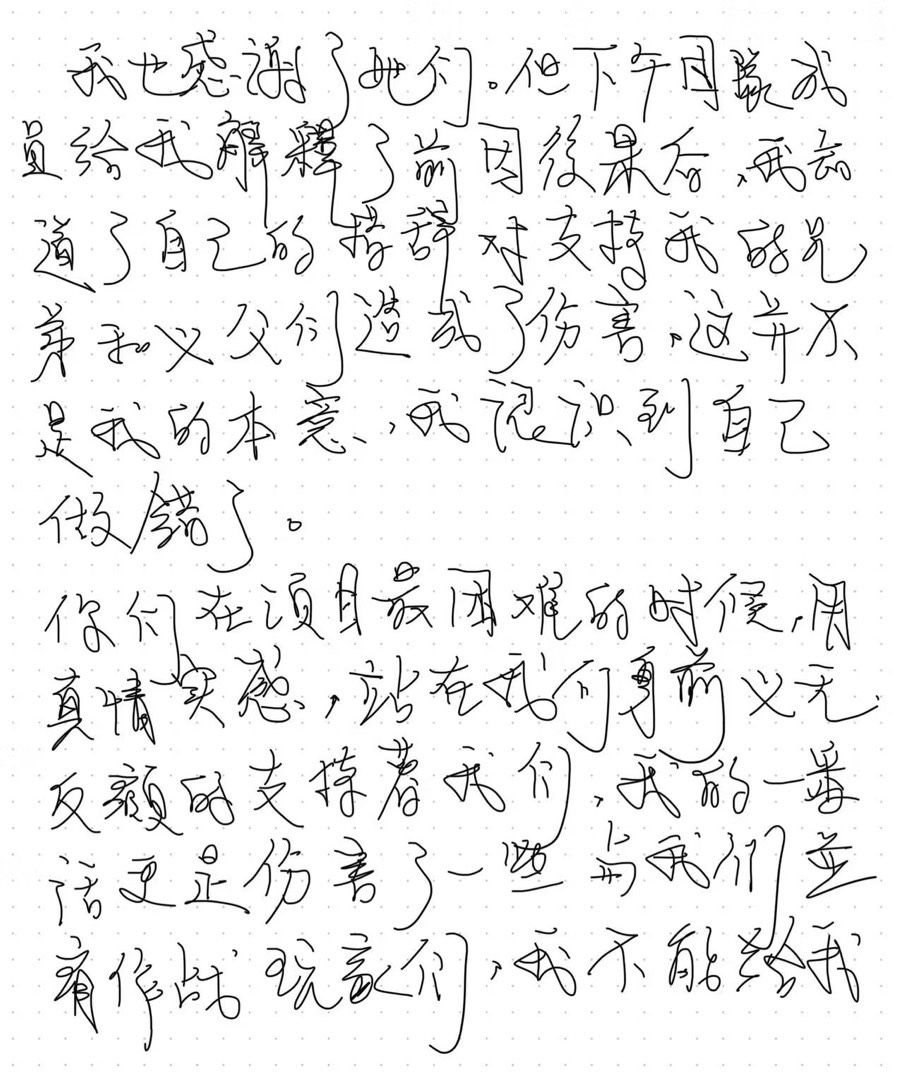 我也感谢了她们。但下午团队成
员给我解释了前因後果后,我知
道了自己的措辞对支持我的兄
弟和义父们造成了伤害,这并不
是我的本意,我认识到自己
做错了。
你们在项目最困难的时候,用
真情实感,站在我们身前义无
反顾的支撑着我们,我的一番
话更是伤害了一些与我们並
肩作战玩家们,我不能给我